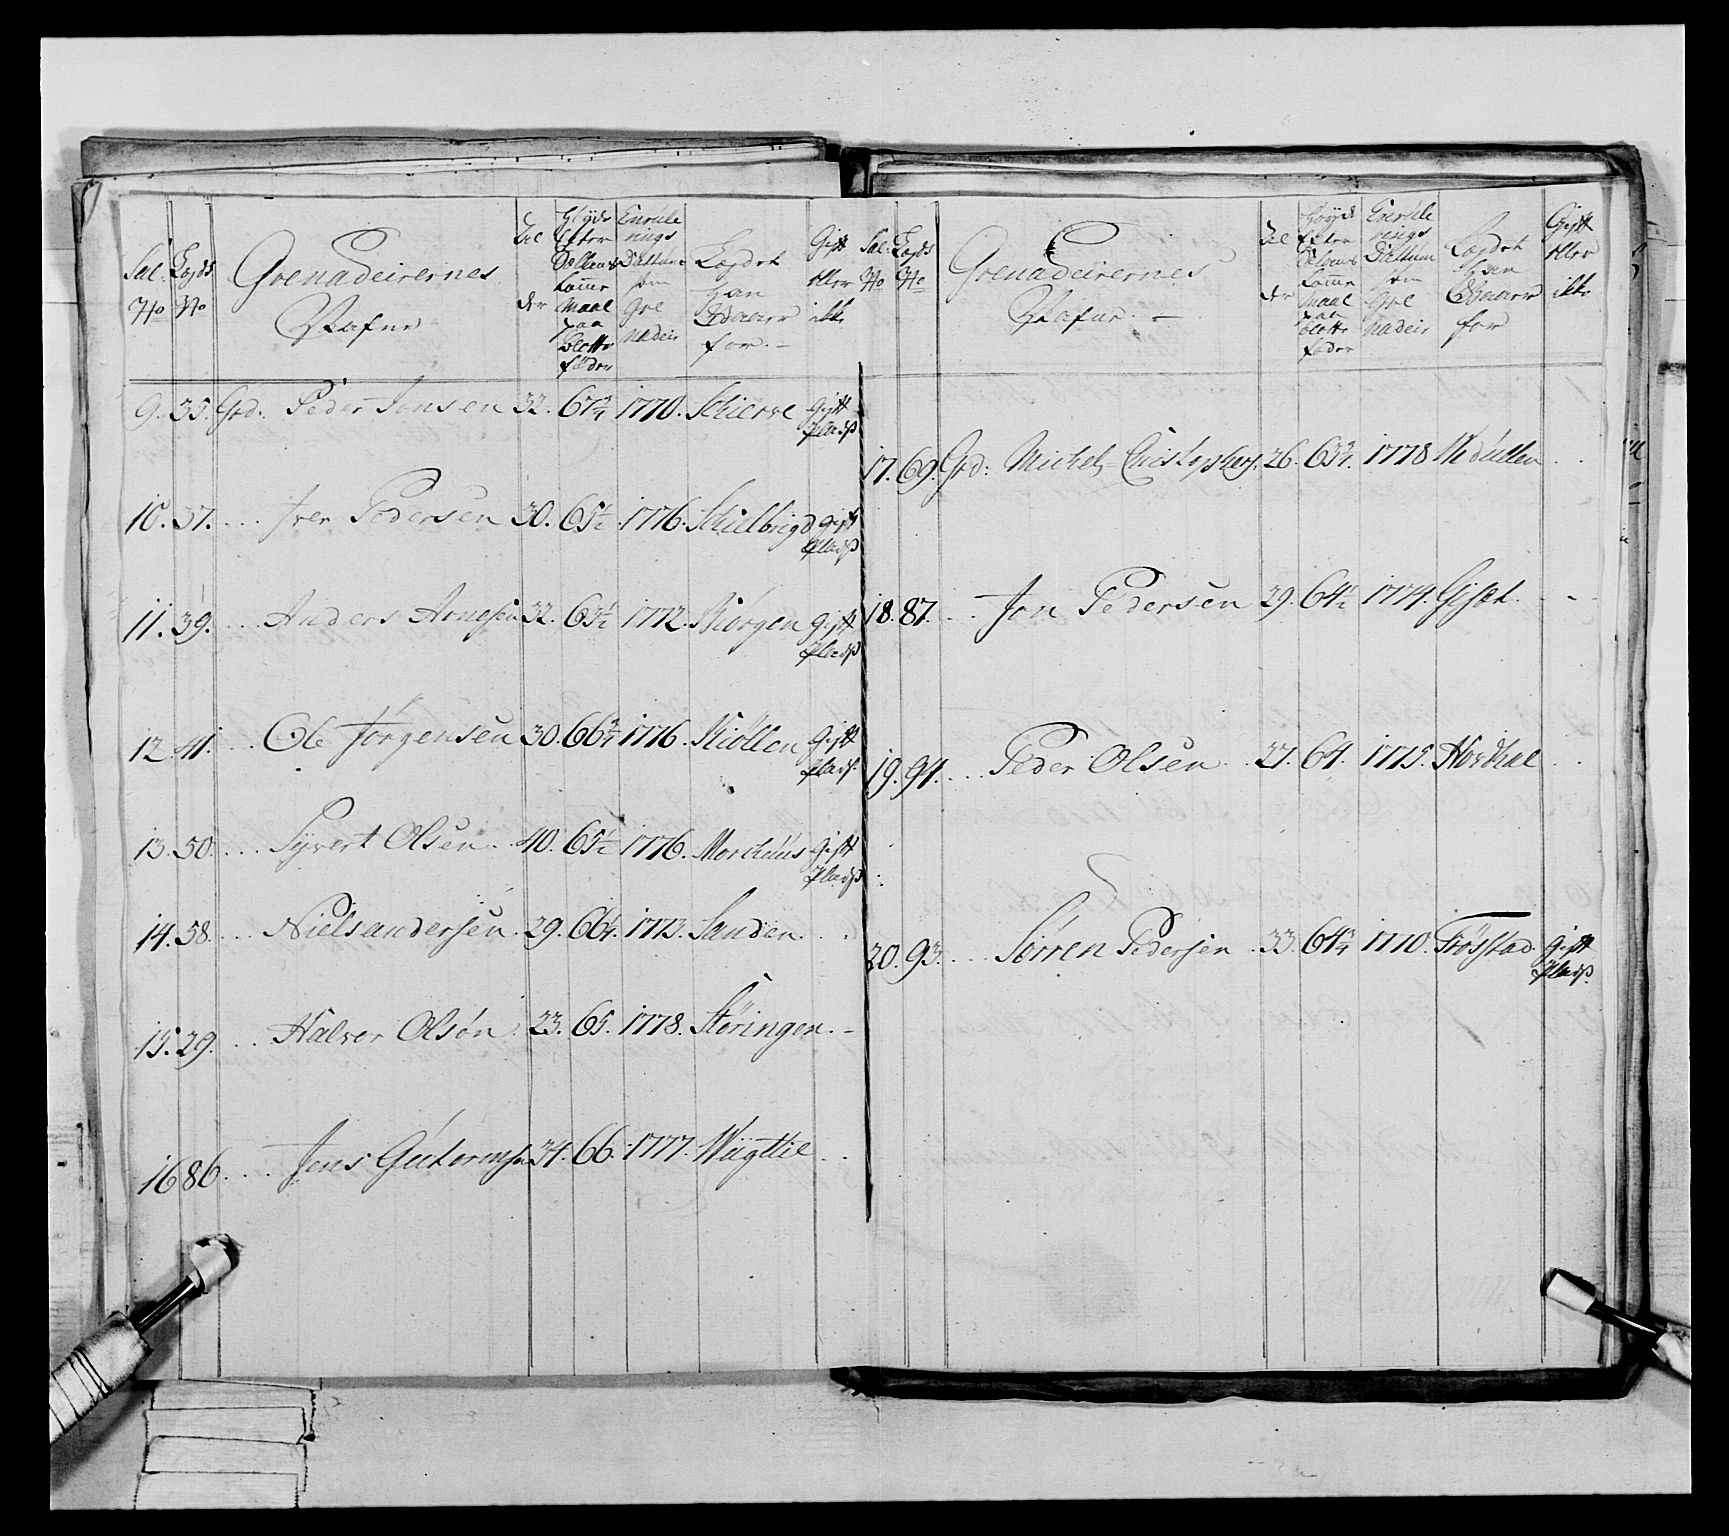 Sal. No
Lægds No
Grenadeirernes Nafne
Al der
Høyde Efter Sællans Lomme Maal paa blotte fødder
Enrulle rings Dattum som Gre nadeir
Lægdet han Svaarer for. –
Gift eller ikke
9. 35. Grd: Peder Jonsen 32. 67 3/4 1770. Schierve Gift Pladß
10. 37. ... Iver Pedersen 30. 65 1/2 1776. Schielbrigd Gift Pladß
11. 39. ... Anders Arnesen 32. 63 1/2 1772. Kiorgen Gift Pladß
12. 41. ... Ole Jørgensen 30. 66 3/4 1776. Kiöllen Gift Pladß
13. 50. ... Syvert Olsen. 40. 65 1/2 1776. Morchuus Gift Pladß
14. 58. ... Niels andersen. 29. 66 1/4. 1773. Sanden. .
15. 29. ... Halvor Olsøn. 23. 65. 1778. Støringen. –
16 86. ... Jens Gutormsen 34. 66. 1777. Wügttil . .
Sal. No
Lægds No
Grenadeirernes Nafne. –
Al der
Høyde Efter Lomme Maal paa blotte føder
Enrulle rings Dattum som Gre nadeir
Lægdet han Svaarer for
Gift eller ikke
17. 69. Grd: Michel Christophers. 26. 63 3/4. 1778 . .
18. 87. ... Jon Pedersen 29. 64 1/2 1774. . - -
19. 94. ... Peder Olsen. 27. 64. 1775. Nordhal . .
20. 93. ... Sørren Pedersen . 33. 64 3/4 1770. Frösstad. Gift Pladß.